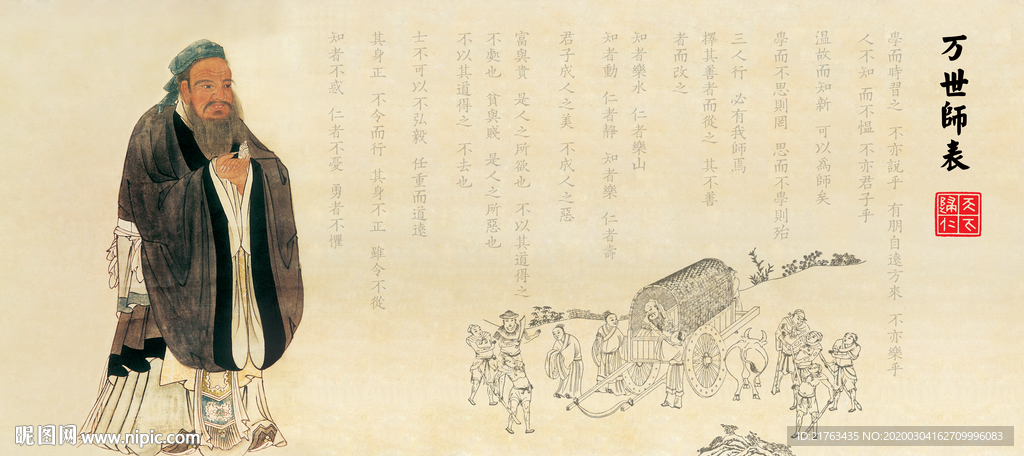 万世師表
天下
歸仁
學而時習之 不亦說乎 有朋自遠方來 不亦樂乎
人不知 而不慍 不亦君子乎
溫故而知新 可以為師矣
學而不思則罔 思而不學則殆
三人行 必有我師焉
擇其善者而從之 其不善
者而改之
知者樂水 仁者樂山
知者動 仁者靜 知者樂 仁者壽
君子成人之美 不成人之惡
富與貴 是人之所欲也 不以其道得之
不處也 貧與賤 是人之所惡也
不以其道得之 不去也
士不可以不弘毅 任重而道遠
其身正 不令而行 其身不正 雖令不從
知者不惑 仁者不憂 勇者不懼
昵图网 www.nipic.com
ID:21763435 NO:20200304162709996083